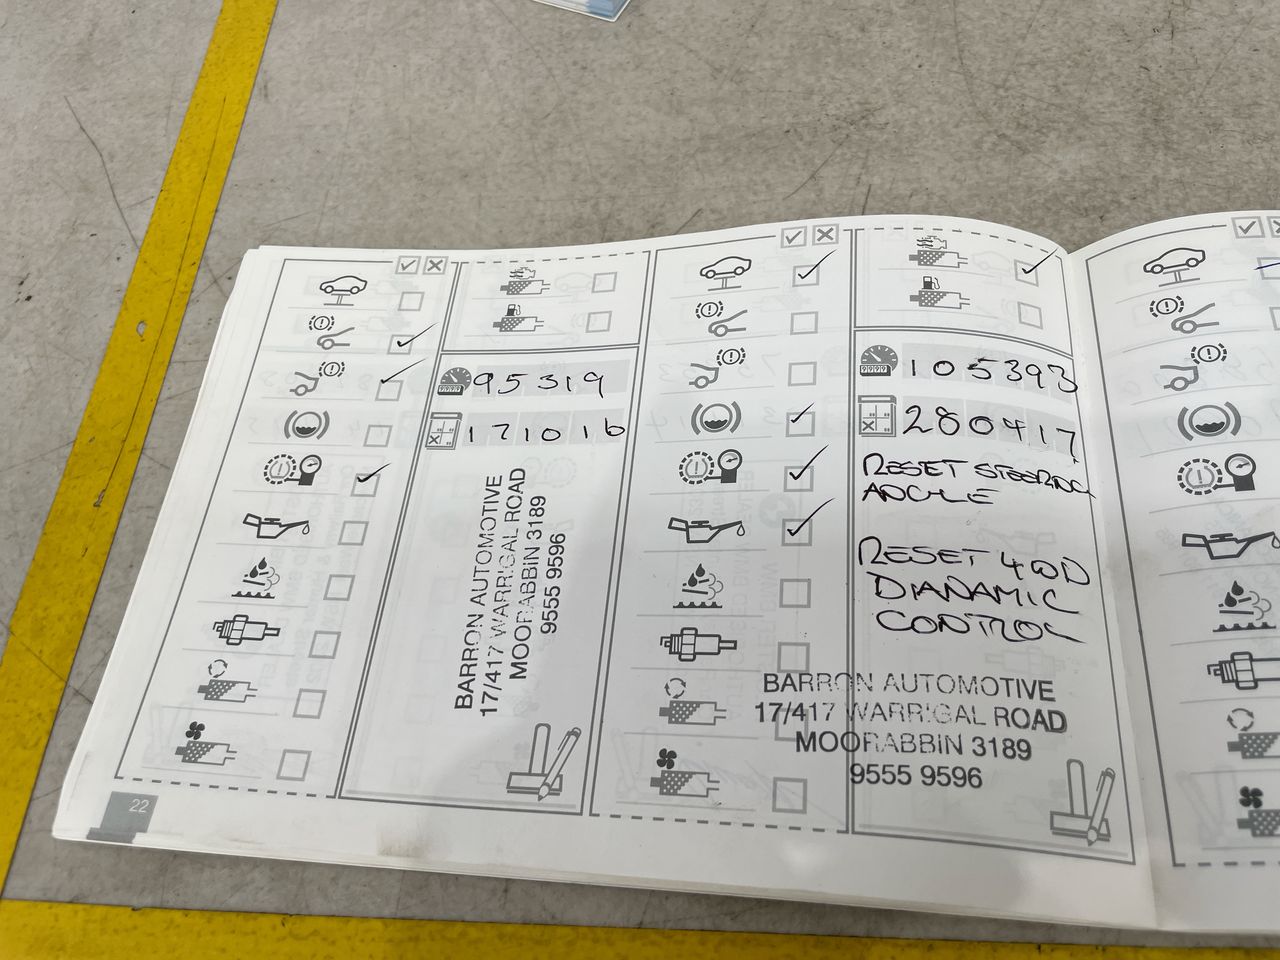 95319
171016
BARRON AUTOMOTIVE
17/417 WARRIGAL ROAD
MOORABBIN 3189
9555 9596
22
105393
280417
RESET STEERING
ANGLE
RESET 4WD
DIANAMIC
CONTROL
BARRON AUTOMOTIVE
17/417 WARRIGAL ROAD
MOORABBIN 3189
9555 9596